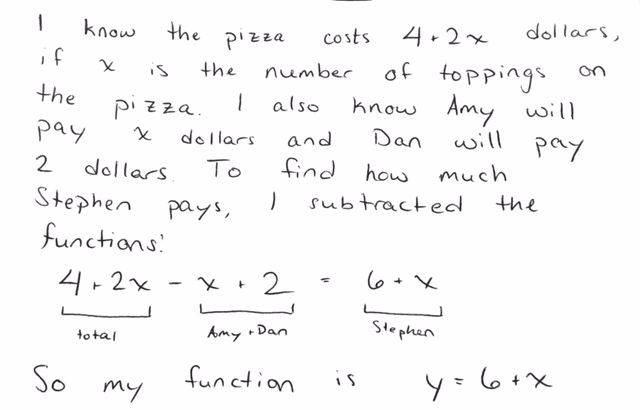 I know the pizza costs 4+2x dollars,
if x is the number of toppings on
the pizza. I also know Amy will
pay x dollars and Dan will pay
2 dollars. To find how much
Stephen pays, I subtracted the
functions:
4+2x - x + 2 = 6+x
total Amy+Dan Stephen
So my function is y=6+x